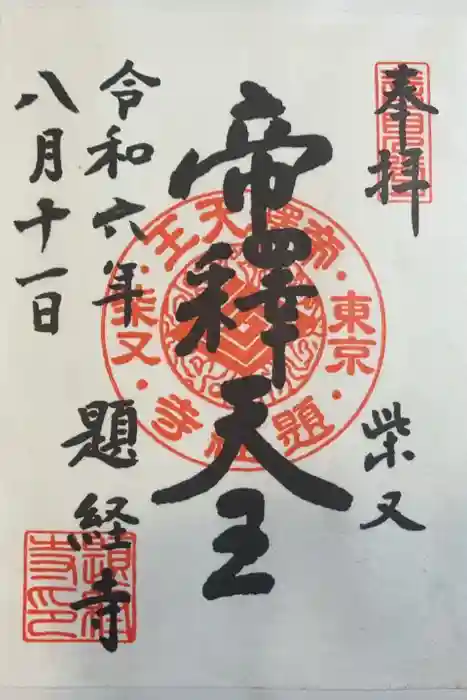 奉拝
柴又
帝釋天王
令和六年
八月十一日
題経寺
帝釋天王・東京・題経寺・柴又・